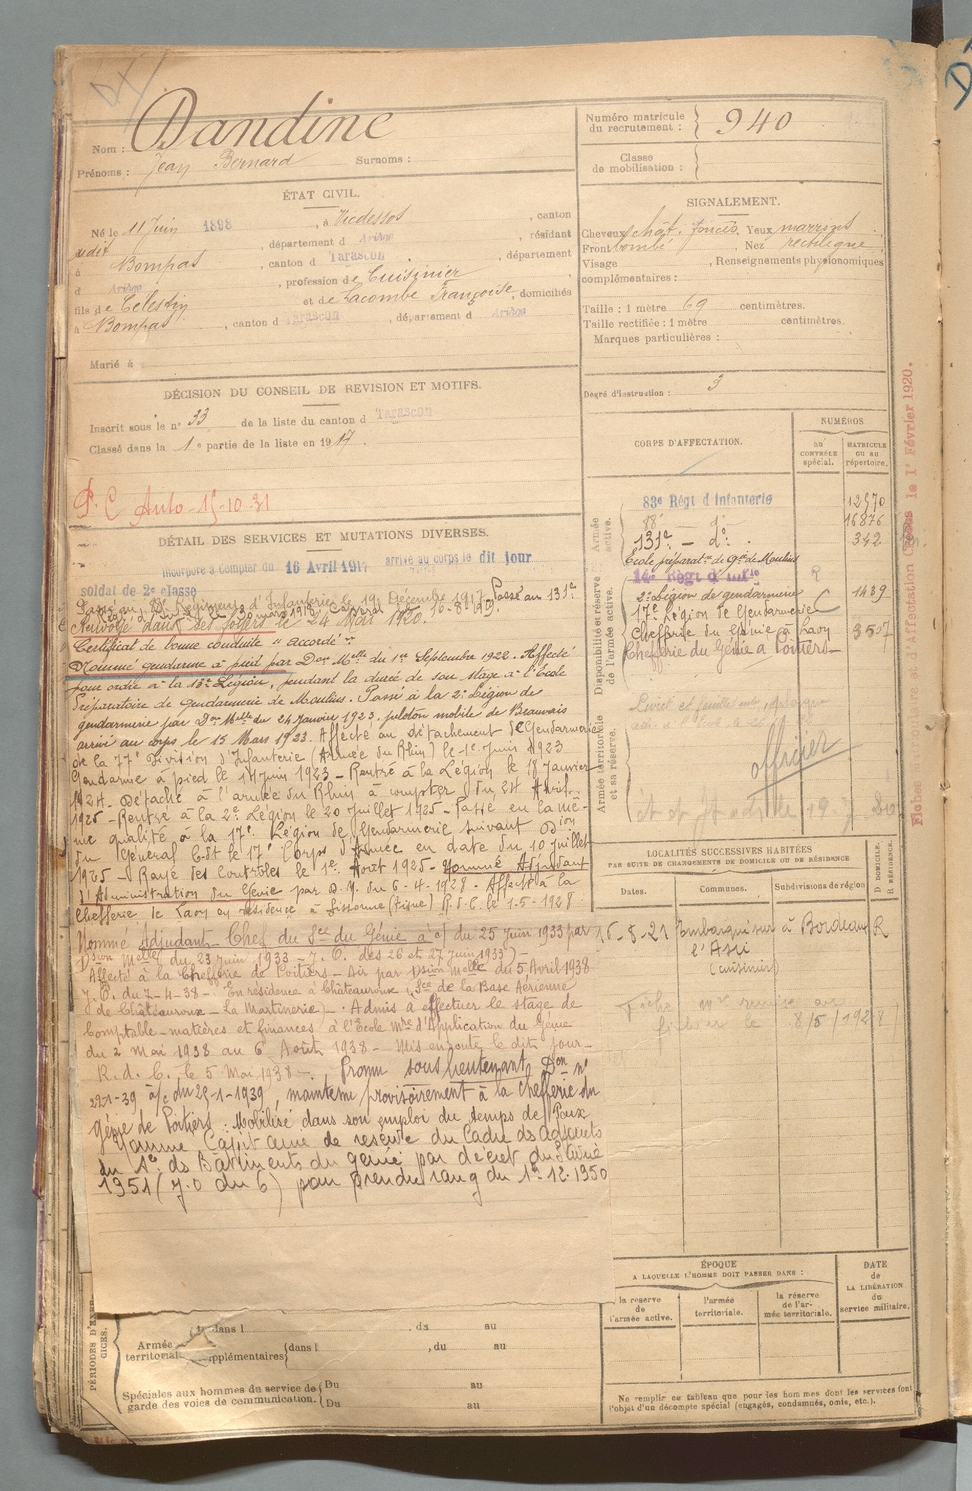 Nom : Dandine
Prénoms : Jean Bernard Surnoms :
Numéro matricule du recrutement : 940
Classe de mobilisation :
ÉTAT CIVIL.
Né le 11 Juin 1898, à Vicdessos, canton
dudit, département d Ariège, résidant
à Bompas, canton d Tarascon, département
d Ariège, profession de Cuisinier,
fils de Célestin et de Lacombe Françoise, domiciliés
à Bompas, canton d Tarascon, département d Ariège
Marié à
SIGNALEMENT.
Cheveux chât. foncés. Yeux marrons
Front bombé, Nez rectiligne
Visage , Renseignements physionomiques
complémentaires :
Taille : 1 mètre 69 centimètres.
Taille rectifiée : 1 mètre centimètres.
Marques particulières :
Degré d'instruction : 3
DÉCISION DU CONSEIL DE REVISION ET MOTIFS.
Inscrit sous le n° 33 de la liste du canton d Tarascon
Classé dans la 1e partie de la liste en 1917.
P. C Auto - 15-10-31
DÉTAIL DES SERVICES ET MUTATIONS DIVERSES.
Incorporé à compter du 16 Avril 1917 arrivé au corps le dit jour
soldat de 2e classe
Régiment d'Infanterie le 19 Décembre 1917 Passé au 131e
Caporal 16-8-19
Renvoyé dans ses foyers le 24 Mai 1920.
Certificat de bonne conduite "accordé"
Nommé gendarme à pied par Don Mlle du 1er Septembre 1922. Affecté
pour ordre à la 13e Légion, pendant la durée de son stage à l'Ecole
Préparatoire de Gendarmerie de Moulins. Passé à la 2e Légion de
gendarmerie par Don Mlle du 24 Janvier 1923, peloton mobile de Beauvais
arrivé au corps le 15 Mars 1923. Affecté au détachement de Gendarmerie
de la 77e Division d'Infanterie (Armée du Rhin) le 1er Juin 1923
Gendarme à pied le Juin 1923 - Rentré à la Légion le 18 Janvier
1924. Détaché à l'armée du Rhin à compter du Avril
1925 - Rentré à la 2e Légion le 20 Juillet 1925 - Passé en la mê-
me qualité à la 17e Légion de Gendarmerie suivant Don
du Général Cdt le 17e Corps d'Armée en date du 10 juillet
1925 - Rayé des Contrôles le 1er Août 1925 - Nommé Adjudant
d'Administration du Génie par D.M. du 6-4-1928 - Affecté à la
Chefferie de Laon en résidence à Sissonne (Aisne) R.d.C. le 1-5-1928
Nommé Adjudant Chef du Sce du Génie à c/ du 25 Juin 1933 par
Dsion Melle du 23 juin 1933 - J.O. des 26 et 27 juin 1933) -
Affecté à la Chefferie de Poitiers - Air par Dsion Melle du 5 Avril 1938
J.O. du 7-4-38 - En résidence à Châteauroux (Sce de la Base Aérienne
de Châteauroux - La Martinerie) - Admis à effectuer le stage de
Comptable - matières et finances à l'Ecole Mre d'Application du Génie
du 2 mai 1938 au 6 Août 1938 - Mis en route le dit jour -
R.d.C. le 5 Mai 1938 - Promu sous lieutenant Don n°
à/c du 25-1-1939, maintenu provisoirement à la chefferie du
génie de Poitiers. Mobilisé dans son emploi du temps de Paix
Nommé Capitaine de réserve du Cadre des adjoints
du Sce des Bâtiments du génie par décret du
1951 (J.O du 6) pour prendre rang du 1er 12.1950
CORPS D'AFFECTATION.
NUMÉROS
au CONTRÔLE spécial.
MATRICULE ou au répertoire.
Armée active.
83e Régt d'Infanterie 12570
88e - do 16876
131e - do 342
Disponibilité et réserve de l'armée active.
Ecole préparatre de Gie de Moulins
14e Régt d'Infie R
2e Légion de gendarmerie 1439
17e Légion de Gendarmerie C
Chefferie du Génie à Laon 3507
Chefferie du Génie à Poitiers
Armée territoriale et sa réserve.
officier
LOCALITÉS SUCCESSIVES HABITÉES
PAR SUITE DE CHANGEMENTS DE DOMICILE OU DE RÉSIDENCE
Dates. Communes. Subdivisions de région D. DOMICILE. R. RÉSIDENCE.
15-8-21 Embarqué sur à Bordeaux R
(cuisinier)
Fiche
fichier le 8/5/1928
ÉPOQUE
A LAQUELLE L'HOMME DOIT PASSER DANS :
la réserve de l'armée active.
l'armée territoriale.
la réserve de l'armée territoriale.
DATE de LA LIBÉRATION du service militaire.
Ne remplir ce tableau que pour les hommes dont les services font
l'objet d'un décompte spécial (engagés, condamnés, omis, etc.)
Armée territoriale
Supplémentaires dans l , du au
Spéciales aux hommes du service de
garde des voies de communication.
Du au
Du au